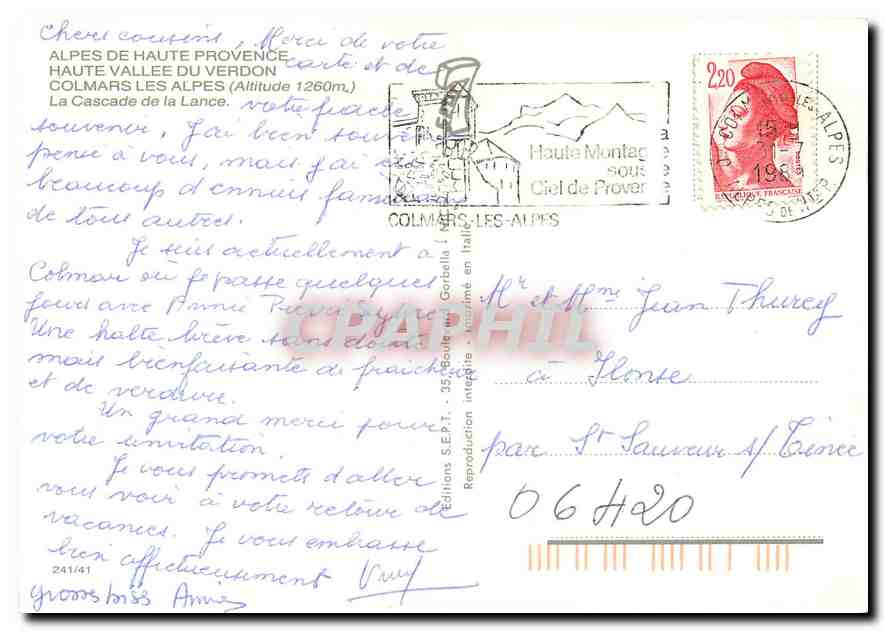 Chers cousins, Merci de votre
carte et de
ALPES DE HAUTE PROVENCE
HAUTE VALLEE DU VERDON
COLMARS LES ALPES (Altitude 1260m.)
La Cascade de la Lance.
votre fidèle
souvenir. J'ai bien souvent
pensé à vous, mais j'ai eu
beaucoup d'ennuis
de tous autres.
Je suis actuellement à
Colmar où je passe quelques
jours avec Annie
Une halte brève sans doute
mais bienfaisante de fraicheur
et de verdure.
Un grand merci pour
votre invitation.
Je vous promets d'aller
vous voir à votre retour de
vacances. Je vous embrasse
bien affectueusement
241/41
grosses bises Annie
Editions S.E.P.T. - 35, Boulevard Gorbella
Reproduction interdite - Imprimé en Italie
Haute Montagne
sous le
Ciel de Provence
COLMARS-LES-ALPES
2,20
REPUBLIQUE FRANCAISE
COLMARS LES ALPES
198
CPAPHIL
Mr et Mme Jean Thurey
à Ilonse
par St Sauveur s/ Tinée
06420